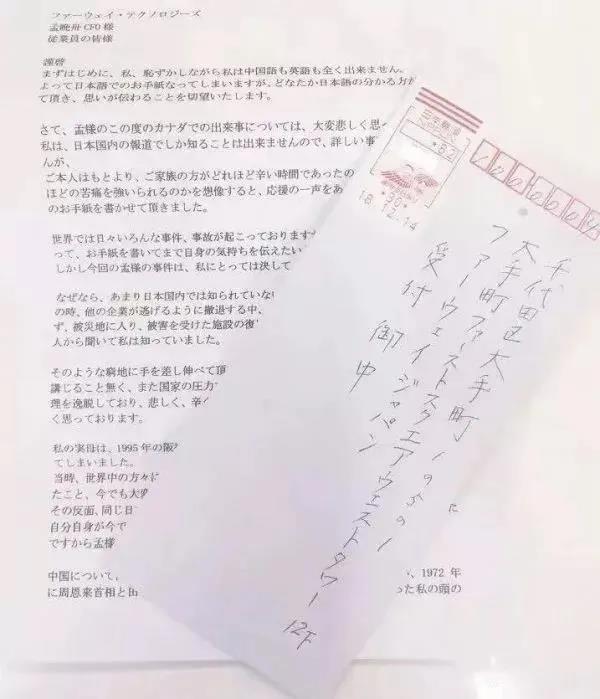 ファーウェイ・テクノロジーズ
孟晩舟 CFO 様
従業員の皆様
謹啓
まずはじめに、私、恥ずかしながら私は中国語も英語も全く出来ません。
よって日本語でのお手紙なってしまいますが、どなたか日本語の分かる方が
て頂き、思いが伝わることを切望いたします。
さて、孟様のこの度のカナダでの出来事については、大変悲しく思
私は、日本国内の報道でしか知ることは出来ませんので、詳しい事
んが、
ご本人はもとより、ご家族の方がどれほど辛い時間であったの
ほどの苦痛を強いられるのかを想像すると、応援の一声をあ
のお手紙を書かせて頂きました。
世界では日々いろんな事件、事故が起こっております
って、お手紙を書いてまで自身の気持ちを伝えたい
しかし今回の孟様の事件は、私にとっては決して
なぜなら、あまり日本国内では知られていな
の時、他の企業が逃げるように撤退する中、
ず、被災地に入り、被害を受けた施設の復
人から聞いて私は知っていました。
そのような窮地に手を差し伸べて頂
講じること無く、また国家の圧力
理を逸脱しており、悲しく、辛
く思っております。
私の実母は、1995 年の阪
てしまいました。
当時、世界中の方々
たこと、今でも大
その反面、同じ日
自分自身が今で
ですから孟様
中国について、
、1972 年
に周恩来首相と
った私の頭の
日本郵便
82
30
18.12.14
千代田区大手町
大手町ファーストスクエアウエストタワー12F
ファーウェイジャパン
受付 御中